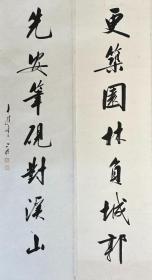 更築園林負城郭
先安筆硯對溪山